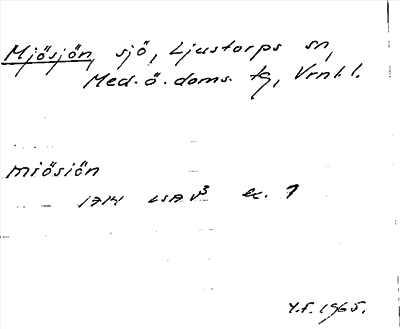 Mjösjön, sjö, Ljustorps sn,
Med. ö. doms. tg, Vrnl.l.
miösiön
1714 LSA V3 ec. 1
Y.F. 1965.